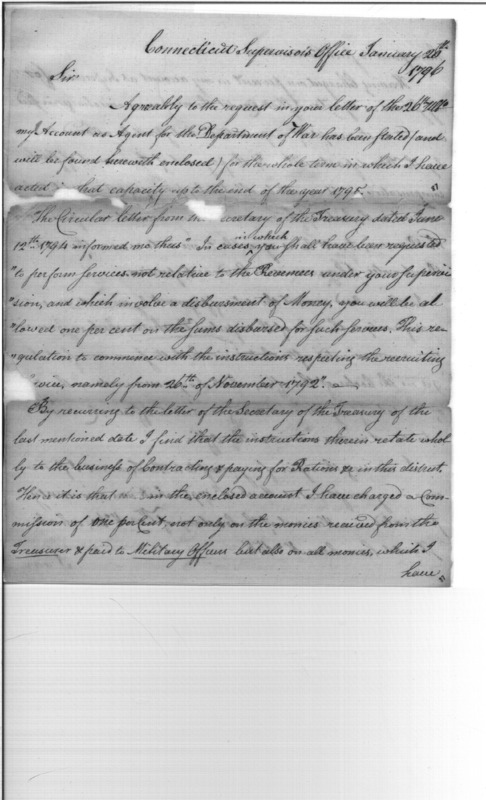 Connecticut Supervisors Office January 20th
1796
Sir
Agreeably to the request in your letter of the 26th Ulto
my Account as Agent for the Department of War has been stated (and
will be found herewith enclosed) for the whole term in which I have
acted in that capacity up to the end of the year 1795.
The Circular letter from the Secretary of the Treasury dated June
12th 1794 informed me thus "In cases in which you shall have been requested
"to perform services not relative to the Revenues under your supervi
"sion, and which involve a disbursment of Money, you will be al
"lowed one per cent on the sums disbursed for such services. This re-
"gulation to commence with the instructions respecting the recruiting
vice, namely from 26th of November 1792"
By recurring to the letter of the Secretary of the Treasury of the
last mentioned date I find that the instructions therein relate whol
ly to the business of Contracting & paying for Rations &c in this district.
Hence it is that in the enclosed account I have charged a Com-
mission of one per Cent not only on the monies received from the
Treasurer & paid to Military Officers but also on all monies, which I
have